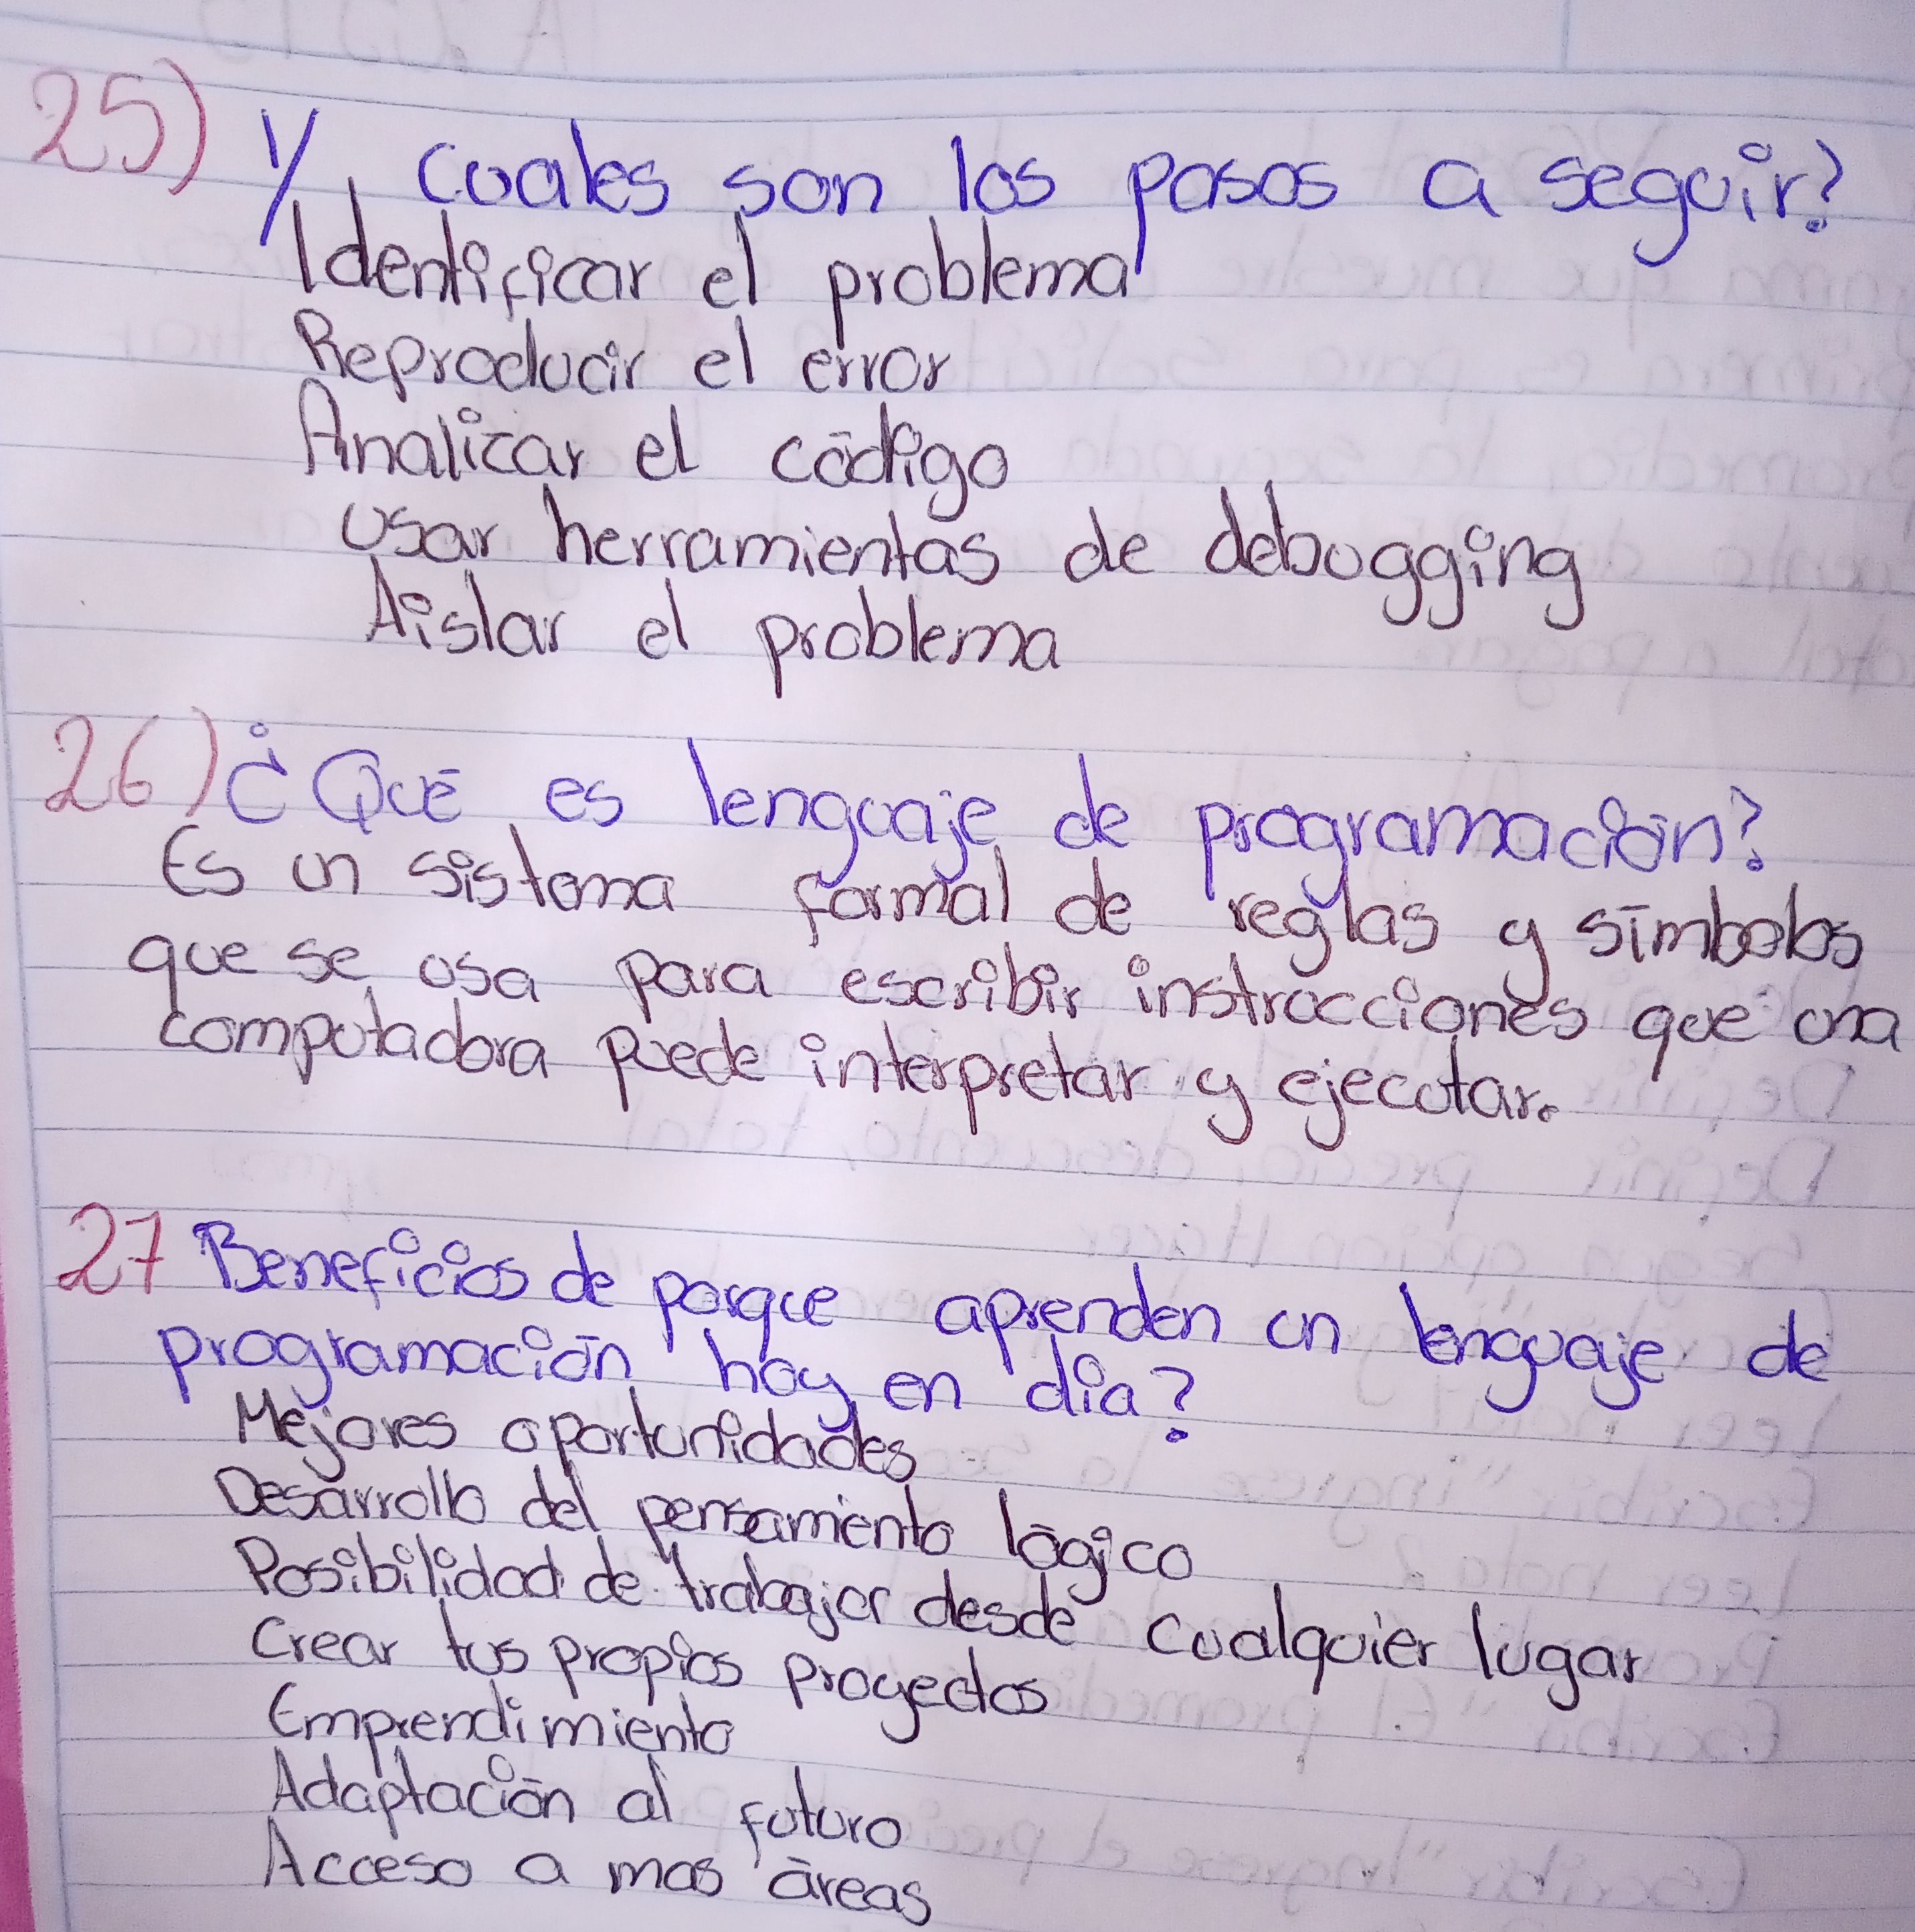 25) Y Cuales son los pasos a seguir?
Identificar el problema
Reproducir el error
Analizar el código
Usar herramientas de debugging
Aislar el problema
26) ¿Qué es lenguaje de programación?
Es un sistema formal de reglas y símbolos
que se usa para escribir instrucciones que una
computadora puede interpretar y ejecutar.
27 Beneficios de porque aprenden un lenguaje de
programación hoy en día?
Mejores oportunidades
Desarrollo del pensamiento lógico
Posibilidad de trabajar desde cualquier lugar
Crear tus propios proyectos
Emprendimiento
Adaptación al futuro
Acceso a mas áreas